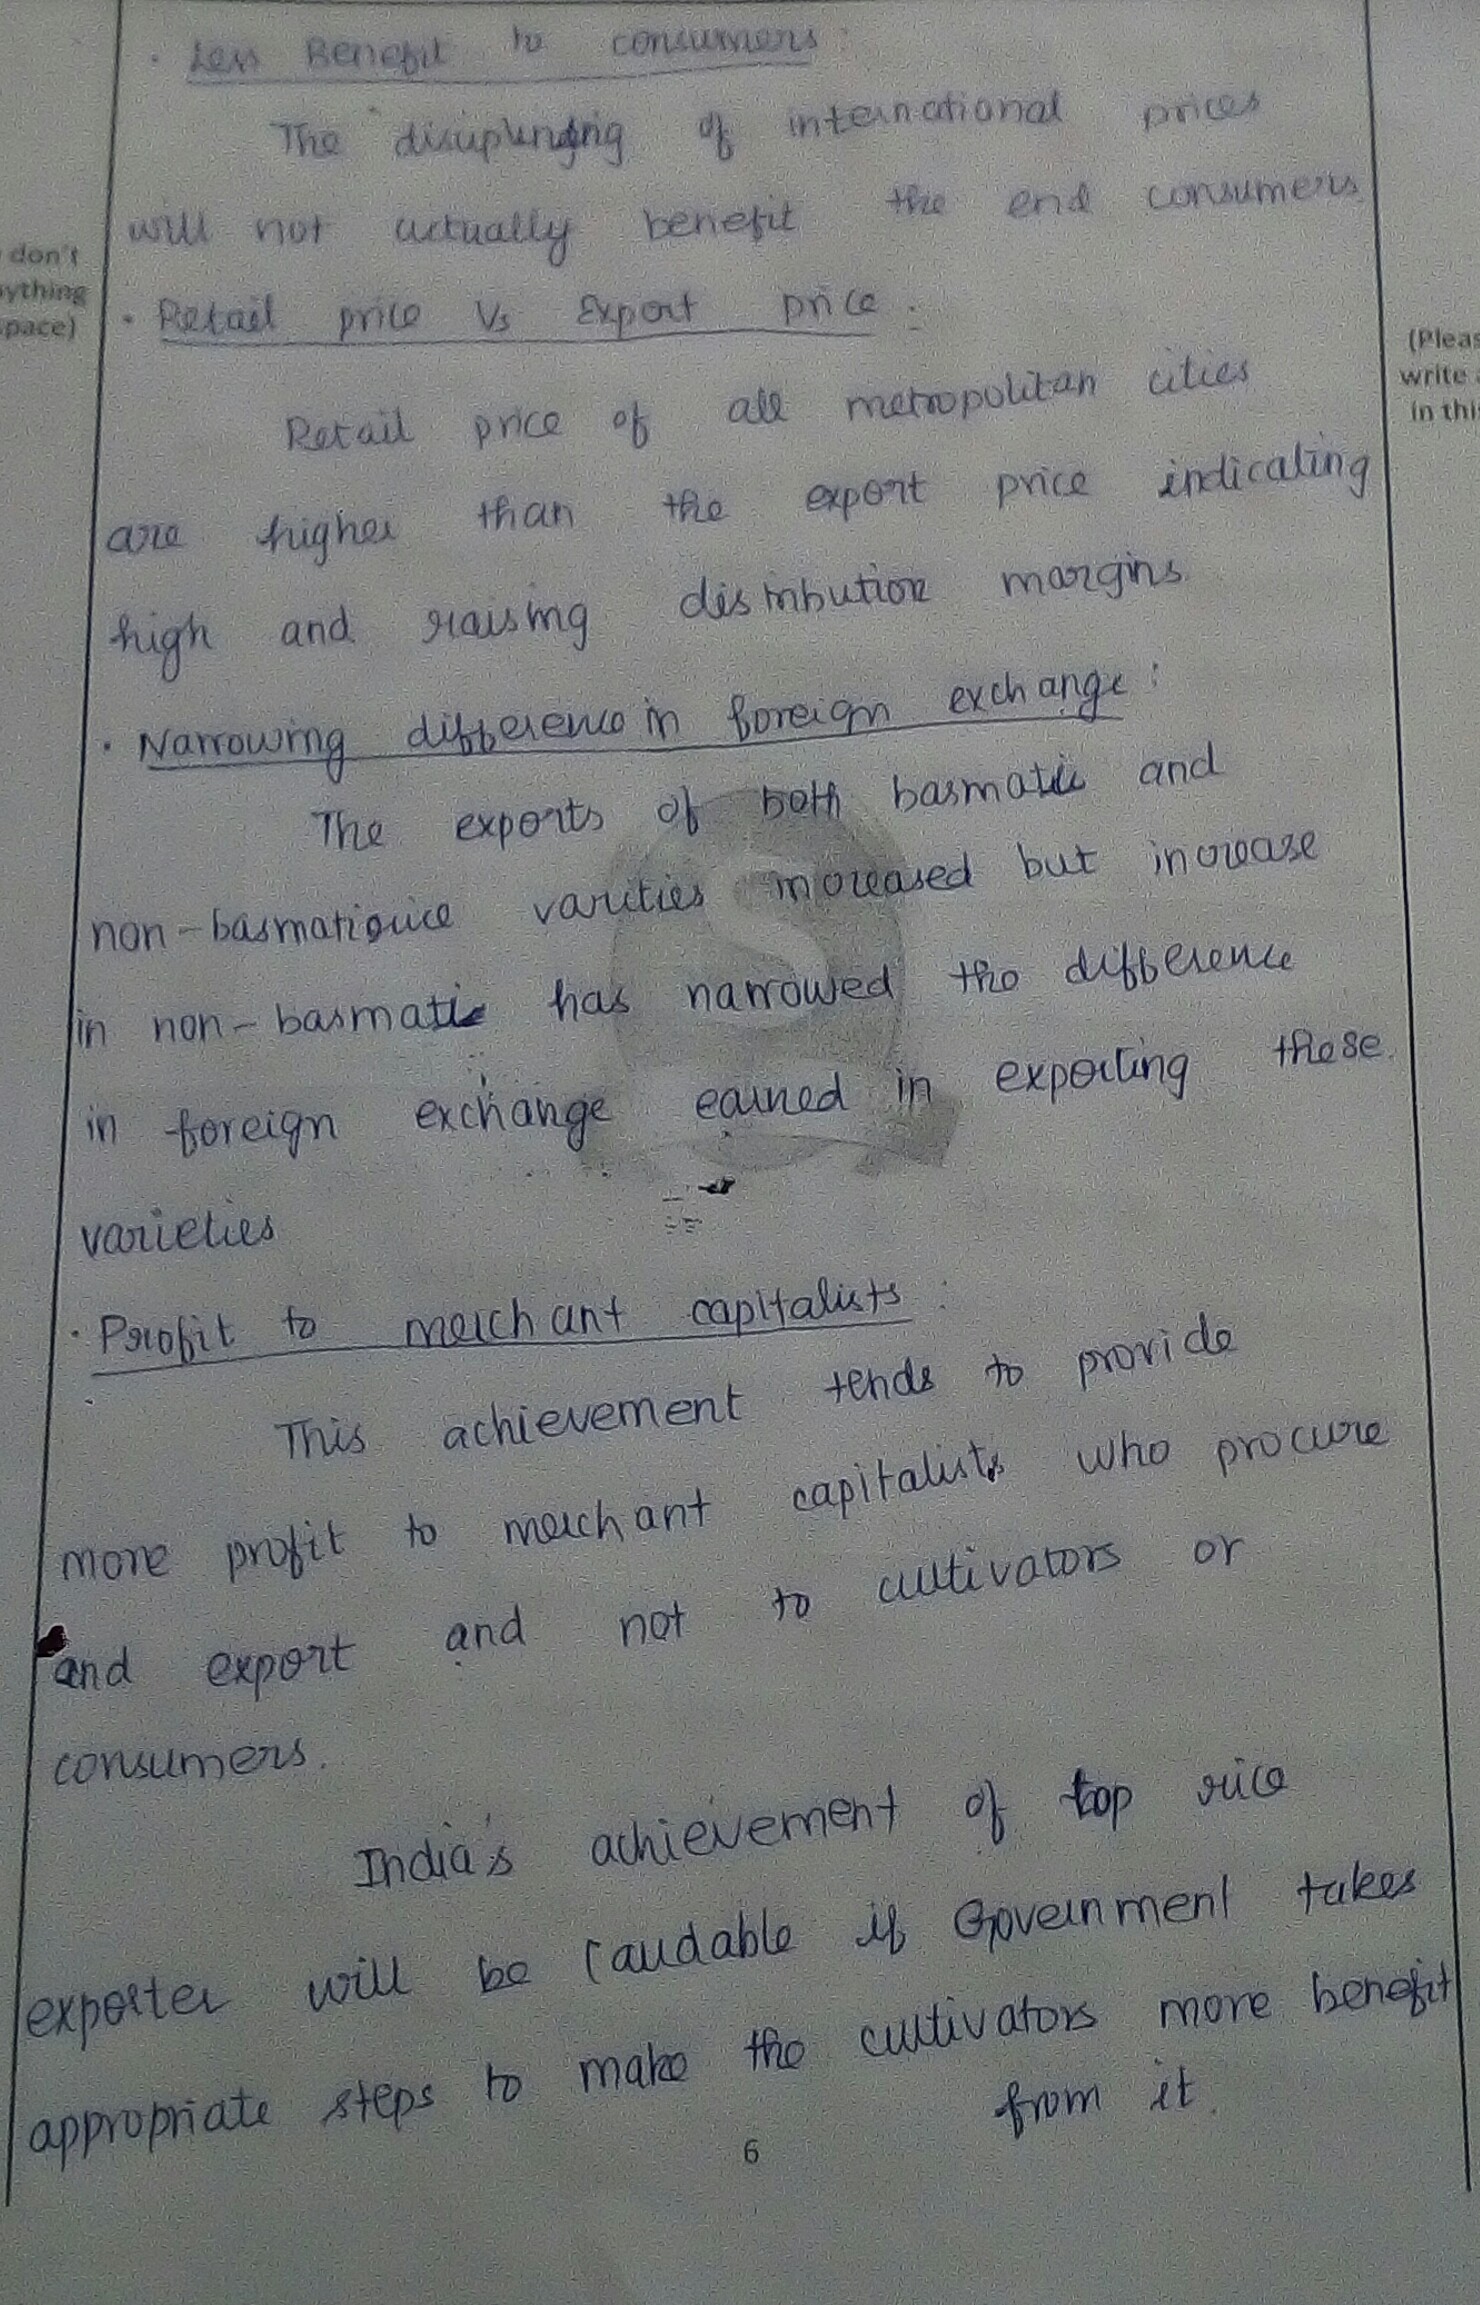 · Less Benefit to consumers :
The disciplining of international prices
will not actually benefit the end consumers.
don't
ything
pace)
· Retail price Vs Export price :
(Pleas
write
in this
Retail price of all metropolitan cities
are higher than the export price indicating
high and raising distribution margins.
· Narrowing difference in foreign exchange :
The exports of both basmati and
non-basmati rice varities increased but increase
in non-basmati has narrowed the difference
in foreign exchange earned in exporting these
varieties
· Profit to merchant capitalists :
This achievement tends to provide
more profit to merchant capitalists who procure
and export and not to cultivators or
consumers.
India's achievement of top rice
exporter will be laudable if Government takes
appropriate steps to make the cultivators more benefit
from it.
6